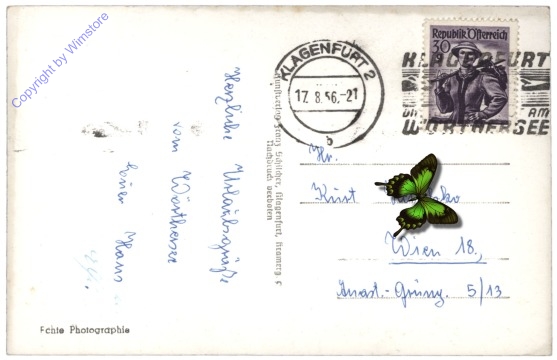 Copyright by Wimstore
Herzliche Urlaubsgrüße
vom Wörthersee
Euer Hans
Echte Photographie
Nachdruck verboten
KLAGENFURT 2
17. 8. 56.-21
b
Republik Österreich
30
KLAGENFURT
AM
WÖRTHERSEE
Hr.
Kurt
Wien 18.,
Anast.-Grüng. 5/13